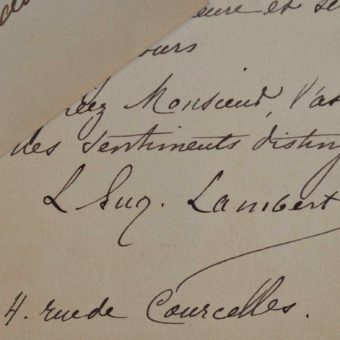 eure et se
ours
ez Monsieur, l'as
des sentiments disting
L Eug. Lambert
4. rue de Courcelles.